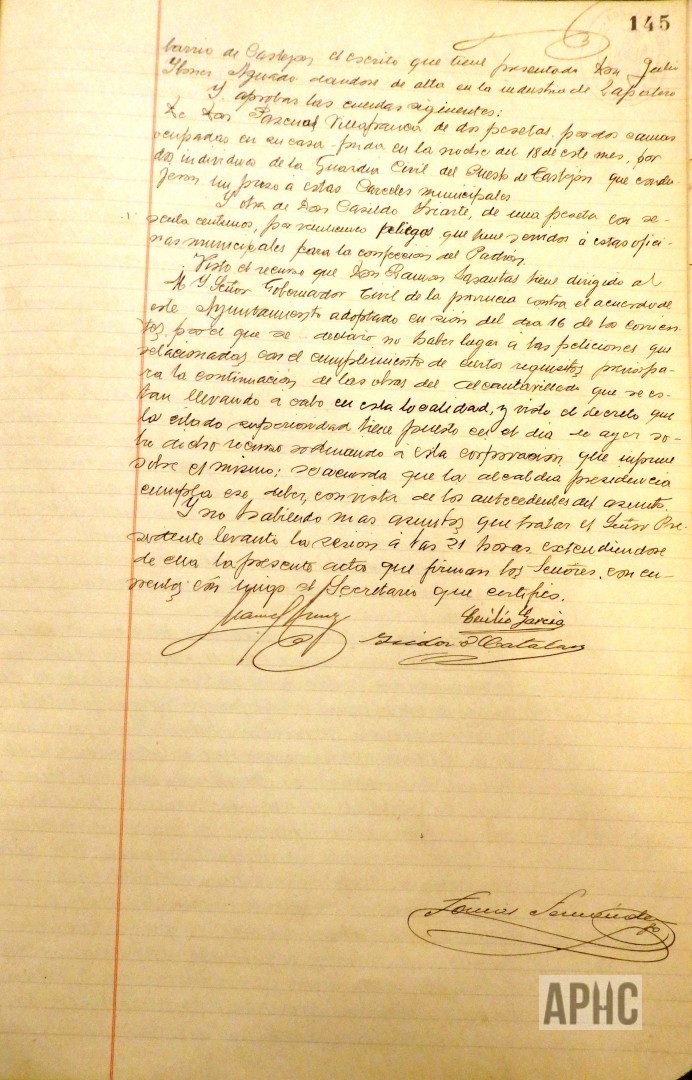 145
barrio de Castejon el escrito que tiene presentado Don Julio
Aguado dandose de alta en la industria de Zapatero
Y aprobar las cuentas siguientes:
De Don Pascual Villafranca de dos pesetas, por dos camas
ocupadas en su casa-posada en la noche del 18 de este mes, por
dos individuos de la Guardia Civil del Puesto de Castejón que condu-
jeron un preso a estas Carceles municipales
Y otra de Don Casildo Iriarte, de una peseta con se-
senta centimos, por pliegos que tiene servidos á estas ofici-
nas municipales para la confeccion del Padrón.
Visto el recurso que Don Ramon tiene dirigido al
M. Y Señor Gobernador Civil de la provincia contra el acuerdo de
este Ayuntamiento adoptado en sesión del dia 16 de los corrien-
tes, por el que se declaró no haber lugar a las peticiones que
relacionadas con el cumplimiento de ciertos requisitos pa-
ra la continuación de las obras del alcantarillado que se es-
tan llevando á cabo en esta localidad, y visto el decreto que
la citada superioridad tiene puesto en el dia de ayer so-
bre dicho recurso ordenando á esta corporación que informe
sobre el mismo; se acuerda que la alcaldia presidencia
cumpla ese deber, con vista de los antecedentes del asunto.
Y no habiendo mas asuntos que tratar el Señor Pre-
sidente levanto la sesion á las 21 horas extendiendose
de ella la presente acta que firman los Señores con-
migo el Secretario que certifico.
Cecilio Garcia
Isidoro Catalan
Tomas
APHC